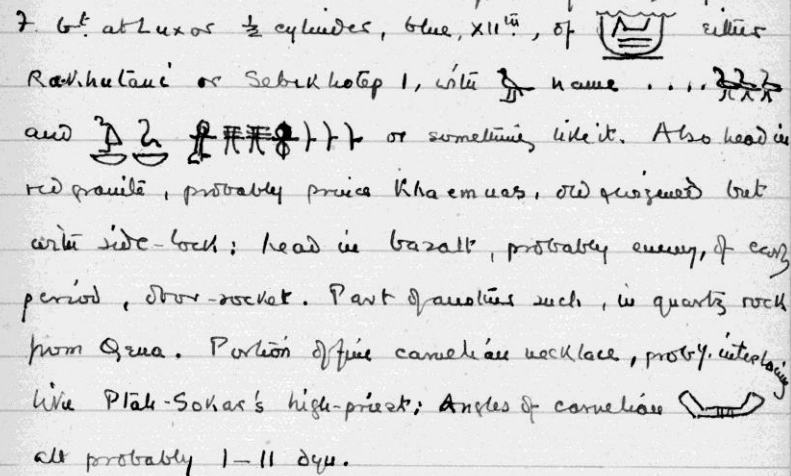 7. bt. at Luxor ½ cylinder, blue, XIIth, of either
Ra.V.hutaui or Sebekhotep 1, with name ....
and or something like it. Also head in
red granite, probably prince Khaemuas, but
with side-lock; head in basalt, probably enemy, of early
period, door-socket. Part of another such, in quartz rock
from Qena. Portion of fine carnelian necklace, proby. interlacing
like Ptah-Sokar's high-priest; Angles of carnelian
all probably 1–11 dyn.